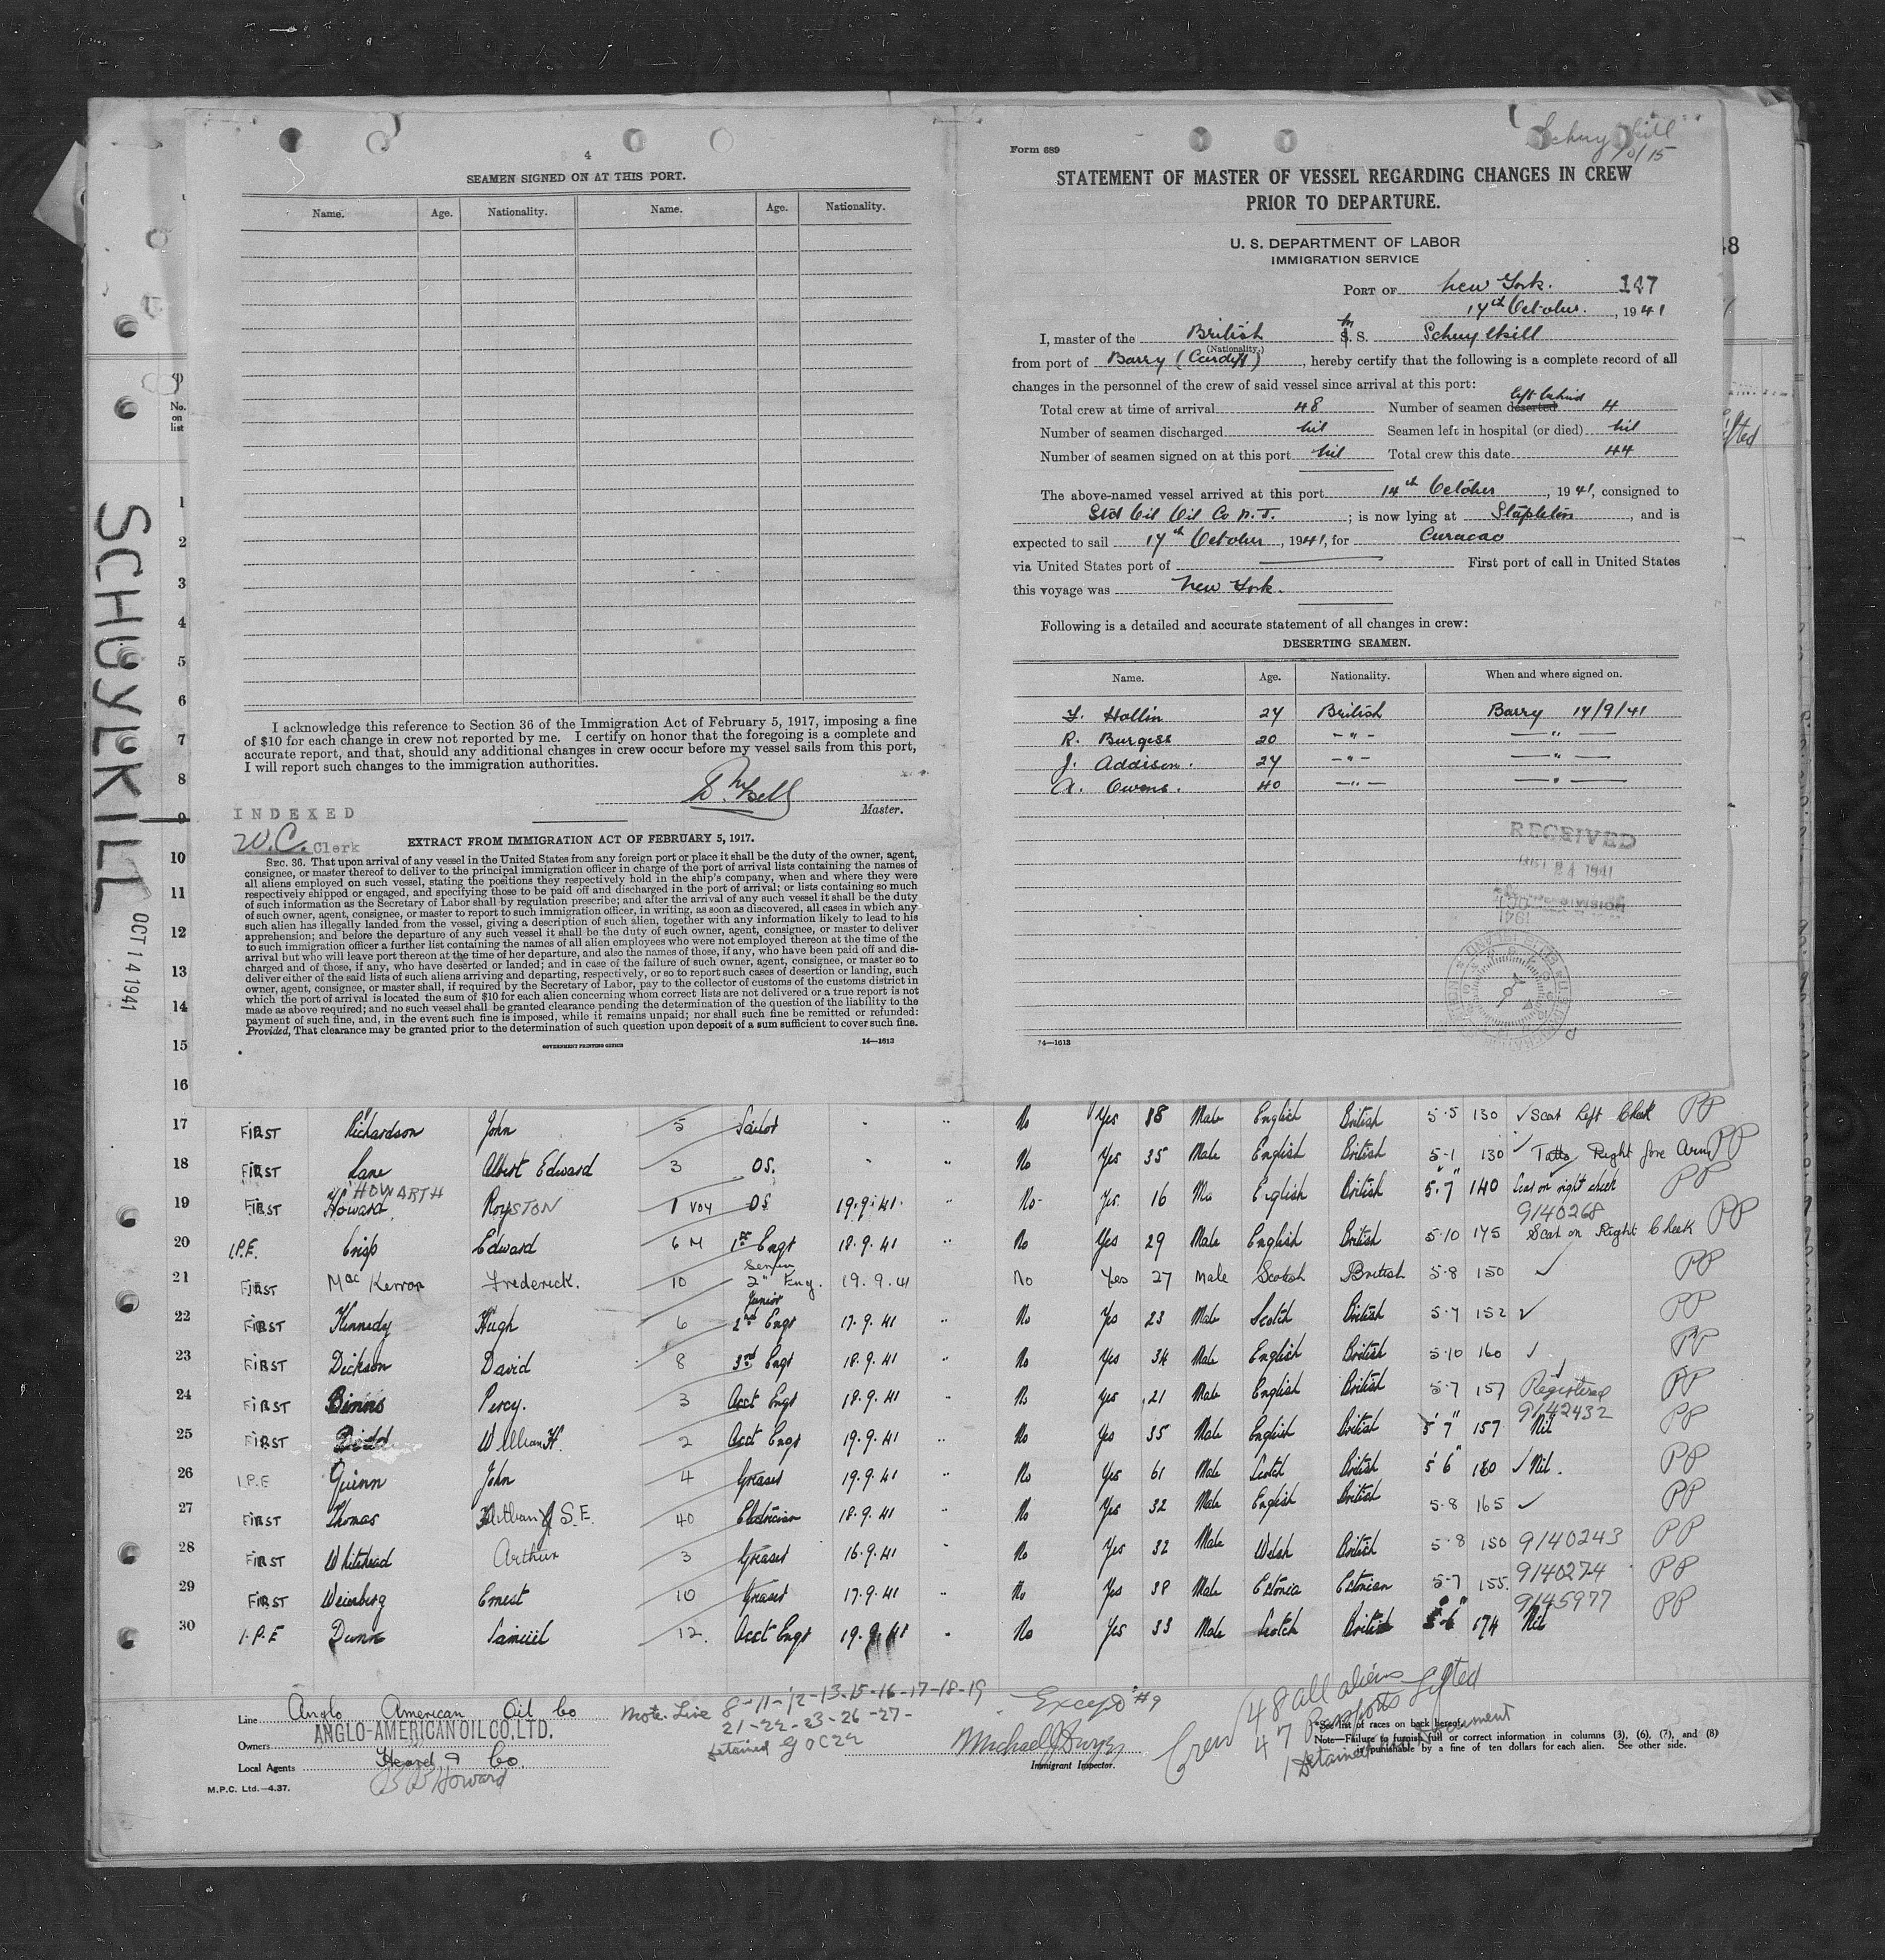 4
SEAMEN SIGNED ON AT THIS PORT.
Name. Age. Nationality. Name. Age. Nationality.
I acknowledge this reference to Section 36 of the Immigration Act of February 5, 1917, imposing a fine
of $10 for each change in crew not reported by me. I certify on honor that the foregoing is a complete and
accurate report, and that, should any additional changes in crew occur before my vessel sails from this port,
I will report such changes to the immigration authorities.
Master.
INDEXED
W.C. Clerk
EXTRACT FROM IMMIGRATION ACT OF FEBRUARY 5, 1917.
SEC. 36. That upon arrival of any vessel in the United States from any foreign port or place it shall be the duty of the owner, agent,
consignee, or master thereof to deliver to the principal immigration officer in charge of the port of arrival lists containing the names of
all aliens employed on such vessel, stating the positions they respectively hold in the ship's company, when and where they were
respectively shipped or engaged, and specifying those to be paid off and discharged in the port of arrival; or lists containing so much
of such information as the Secretary of Labor shall by regulation prescribe; and after the arrival of any such vessel it shall be the duty
of such owner, agent, consignee, or master to report to such immigration officer, in writing, as soon as discovered, all cases in which any
such alien has illegally landed from the vessel, giving a description of such alien, together with any information likely to lead to his
apprehension; and before the departure of any such vessel it shall be the duty of such owner, agent, consignee, or master to deliver
to such immigration officer a further list containing the names of all alien employees who were not employed thereon at the time of the
arrival but who will leave port thereon at the time of her departure, and also the names of those, if any, who have been paid off and dis-
charged and of those, if any, who have deserted or landed; and in case of the failure of such owner, agent, consignee, or master so to
deliver either of the said lists of such aliens arriving and departing, respectively, or so to report such cases of desertion or landing, such
owner, agent, consignee, or master shall, if required by the Secretary of Labor, pay to the collector of customs of the customs district in
which the port of arrival is located the sum of $10 for each alien concerning whom correct lists are not delivered or a true report is not
made as above required; and no such vessel shall be granted clearance pending the determination of the question of the liability to the
payment of such fine, and, in the event such fine is imposed, while it remains unpaid; nor shall such fine be remitted or refunded:
Provided, That clearance may be granted prior to the determination of such question upon deposit of a sum sufficient to cover such fine.
GOVERNMENT PRINTING OFFICE 14—1613
Schuylkill
10/15
Form 689
STATEMENT OF MASTER OF VESSEL REGARDING CHANGES IN CREW
PRIOR TO DEPARTURE.
U. S. DEPARTMENT OF LABOR
IMMIGRATION SERVICE
PORT OF New York. 147
17th October. , 1941
I, master of the British S. S. Schuylkill
(Nationality.)
from port of Barry (Cardiff) , hereby certify that the following is a complete record of all
changes in the personnel of the crew of said vessel since arrival at this port:
left behind
Total crew at time of arrival 48 Number of seamen deserted 4
Number of seamen discharged Nil Seamen left in hospital (or died) Nil
Number of seamen signed on at this port Nil Total crew this date 44
The above-named vessel arrived at this port 14th October , 1941, consigned to
Std Oil Oil Co N.J. ; is now lying at Stapleton , and is
expected to sail 17th October , 1941, for Curacao
via United States port of First port of call in United States
this voyage was New York.
Following is a detailed and accurate statement of all changes in crew:
DESERTING SEAMEN.
Name. Age. Nationality. When and where signed on.
F. Hollin 27 British Barry 17/9/41
R. Burgess 20 – " – — " —
J. Addison. 27 – " – — " —
A. Owens. 40 – " – — " —
RECEIVED
OCT 24 1941
14—1613
48
SCHUYLKILL OCT 14 1941
No.
on
list
1
2
3
4
5
6
7
8
9
10
11
12
13
14
15
16
17 FIRST Richardson John 5 Sailor " No Yes 18 Male English British 5·5 130 ✓ Scar Left Cheek PP
18 FIRST Lane Albert Edward 3 OS. " No Yes 35 Male English British 5-1 130 ✓ Tatto Right fore Arm PP
HOWARTH
19 FIRST Howard Royston 1 voy OS 19.9.41. " No Yes 16 Ma English British 5.7" 140 Scar on right cheek PP
9140268
20 I.P.E. Crisp Edward 6 M 1st Engr 18.9.41 " No Yes 29 Male English British 5·10 175 Scar on Right Cheek PP
Senior
21 FIRST Mac Kerron Frederick. 10 2" Eng. 19.9.41 No Yes 27 Male Scotish British 5·8 150 ✓ PP
Junior
22 FIRST Kennedy Hugh 6 2nd Engr 17.9.41 " No Yes 23 Male Scotch British 5·7 152 ✓ PP
23 FIRST Dickson David 8 3rd Engr 18.9.41 " No Yes 34 Male English British 5·10 160 ✓ PP
24 FIRST Binns Percy. 3 Asst Engr 18.9.41 " No Yes 21 Male English British 5·7 157 Registered PP
9142432
25 FIRST William H. 2 Asst Engr 19.9.41 " No Yes 35 Male English British 5'7" 157 Nil PP
26 I.P.E Quinn John 4 Greaser 19.9.41 " No Yes 61 Male Scotch British 5'6" 160 ✓ Nil. PP
27 FIRST Thomas S.E. 40 Electrician 18.9.41 " No Yes 32 Male English British 5·8 165 ✓ PP
28 FIRST Whitehead Arthur 3 Greaser 16.9.41 " No Yes 32 Male Welsh British 5·8 150 9140243 PP
9140274
29 FIRST Weinberg Ernest 10 Greaser 17.9.41 " No Yes 38 Male Estonia Estonian 5·7 155. PP
9145977
30 I.P.E Dunn Samuel 12. Asst Engr 19.9.41 " No Yes 33 Male Scotch British 5·6" 174 Nil PP
Line Anglo American Oil Co
ANGLO-AMERICAN OIL CO, LTD.
Owners
Local Agents Heard & Co.
Howard
M.P.C. Ltd.—4.37.
Note. Line 8-11-12-13-15-16-17-18-19
21-22-23-26-27-
detained
Except #9
Immigrant Inspector.
Crew 48 all aliens
47 Passports lifted
1 Detained Document
*See list of races on back hereof.
Note—Failure to furnish full or correct information in columns (3), (6), (7), and (8)
is punishable by a fine of ten dollars for each alien. See other side.